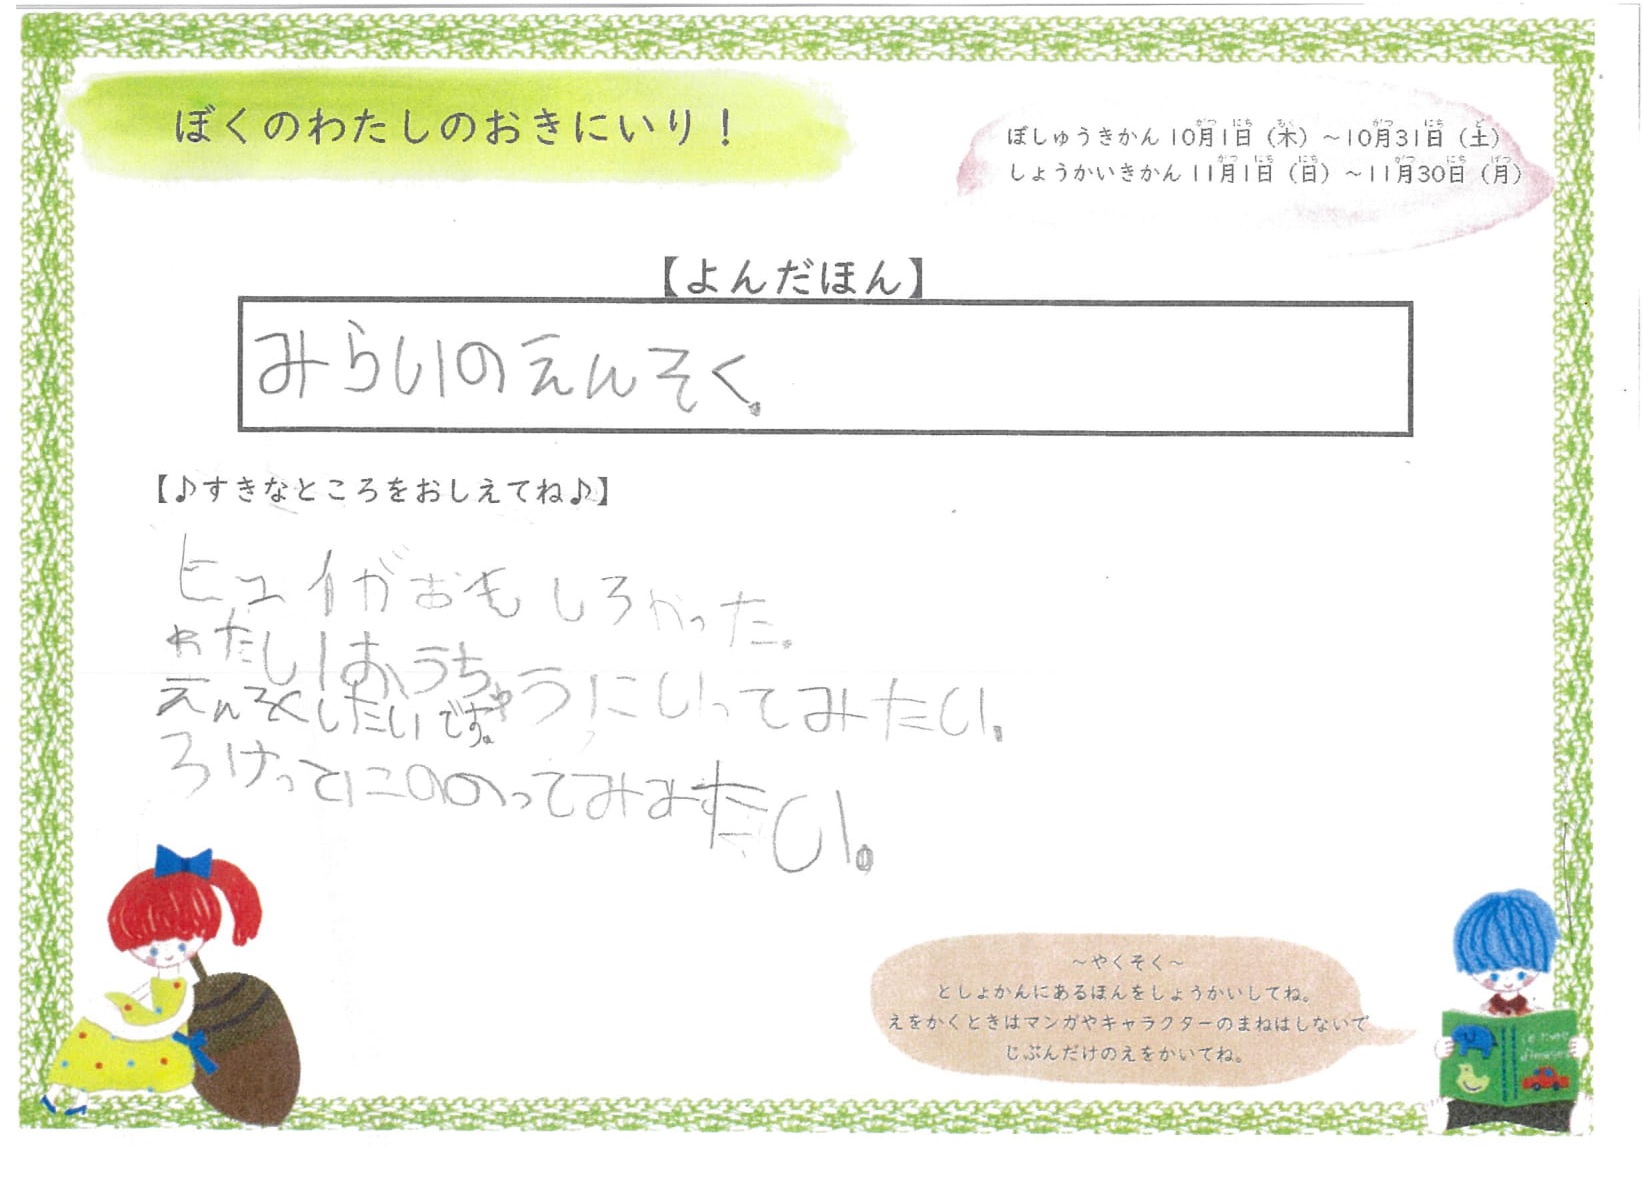 ぼくのわたしのおきにいり！
ぼしゅうきかん 10月1日（木）～10月31日（土）
しょうかいきかん 11月1日（日）～11月30日（月）
【よんだほん】
みらいのえんそく。
【♪すきなところをおしえてね♪】
ヒュイがおもしろかった。
わたしはうちゅうにいってみたい。
えんそくしたいです。
ろけっとにののってみみたい。
～やくそく～
としょかんにあるほんをしょうかいしてね。
えをかくときはマンガやキャラクターのまねはしないで
じぶんだけのえをかいてね。